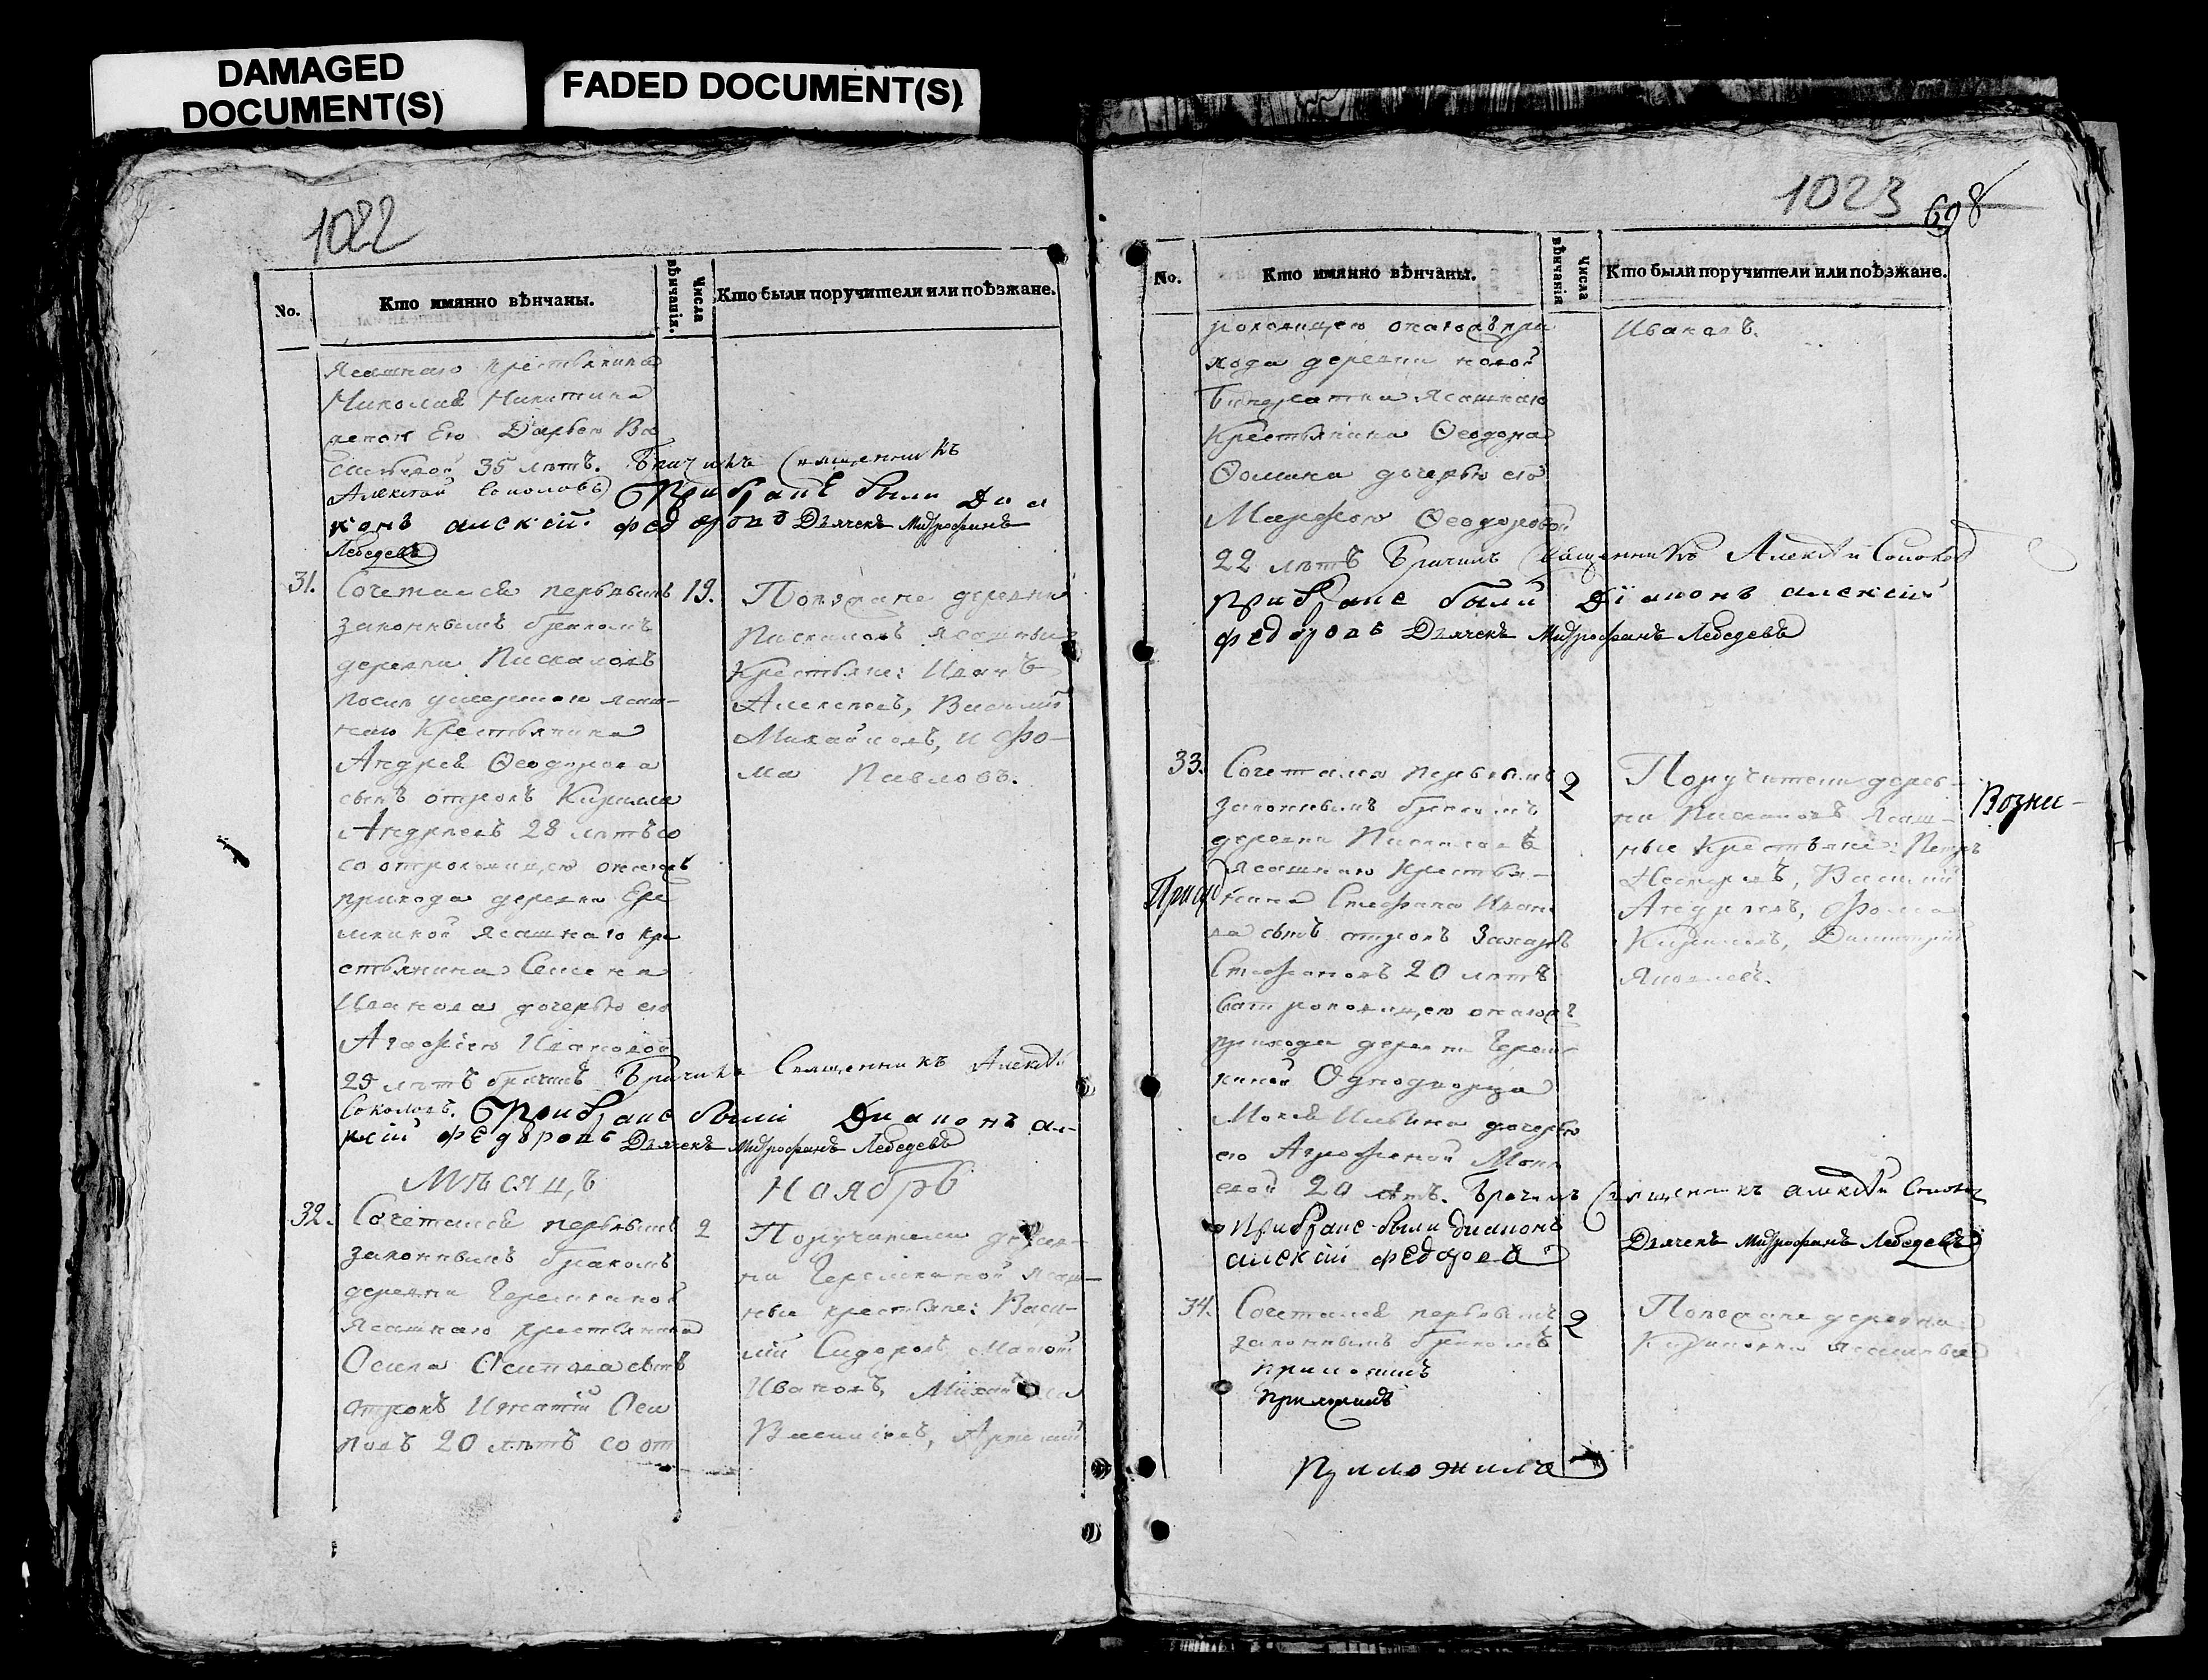 DAMAGED
DOCUMENT(S)
FADED DOCUMENT(S)
1022
No.
Кто имянно вѣнчаны.
Числа
вѣнчанія.
Кто были поручители или поѣзжане.
Ясашнаго крестьянина
Николая Никитина
Дарьею Ва
сильевой 35 лѣтъ. Вѣнчалъ Священникъ
Алексѣй Соколовъ При бракѣ были Диа
конъ алексій федоровъ Дьячекъ Митрофанъ
Лебедевъ
31.
Сочетался первымъ
19.
законнымъ бракомъ
деревни Пискаловъ
Крестьянина
Андрея Ѳеодорова
сынъ отрокъ Кирилла
Андреевъ 28 лѣтъ со
со отроковицею онаго
прихода деревни Ере
мкиной ясашнаго кре
стьянина Семена
Иванова дочерью его
Агафіею Ивановой
25 лѣтъ Священникъ Алексѣй
Соколовъ. При бракѣ были Диаконъ але
ксій федоровъ Дьячекъ Митрофанъ Лебедевъ
Поѣзжане деревни
Пискаловъ ясашныя
Крестьяне: Иванъ
Алексѣевъ, Василій
Михайловъ, и Ѳо-
ма Павловъ.
Мѣсяцъ
Ноябрь
32.
Сочетался первымъ
2
законнымъ бракомъ
деревни Черемкиной
Ясашнаго крестьянина
Осипа Осипова сынъ
отрокъ Игнатій Оси
повъ 20 лѣтъ со от
Поручители дерев-
ни Черемкиной ясаш-
ные крестьяне: Васи-
лій Сидоровъ,
Ивановъ,
Васильевъ,
1023
698
No.
Кто имянно вѣнчаны.
Числа
вѣнчанія
Кто были поручители или поѣзжане.
роковицею онаго при
хода деревни новой
Ясашнаго
Крестьянина Ѳеодора
Ѳомина дочерью его
Марфою Ѳеодоровой
22 лѣтъ Священникъ Алексѣй Соколовъ
При бракѣ были Діаконъ алексій
федоровъ Дьячекъ Митрофанъ Лебедевъ
Ивановъ.
33.
Сочетался первымъ
2
законнымъ бракомъ
деревни Пискаловъ
Ясашнаго Крестья-
нина Стефана Ивано
ва сынъ отрокъ Захаръ
Стефановъ 20 лѣтъ
со отроковицею онаго
прихода деревни Черем
киной Однодворца
Мокея Ильина дочерью
его Агрофеной Моки
евой 20 лѣтъ. Священникъ алексѣй Соколовъ
При бракѣ были диаконъ
алексій федоровъ
Дьячекъ Митрофанъ Лебедевъ
Поручители дерев-
ни Пискаловъ Ясаш-
ные Крестьяне: Петръ
Нестеровъ, Василій
Андреевъ, Ѳома
Кириловъ, Димитрій
Яковлевъ.
34.
Сочетался первымъ
2
законнымъ бракомъ
Поѣзжане деревни
ясашныя
приложилъ
приложилъ
приложилъ